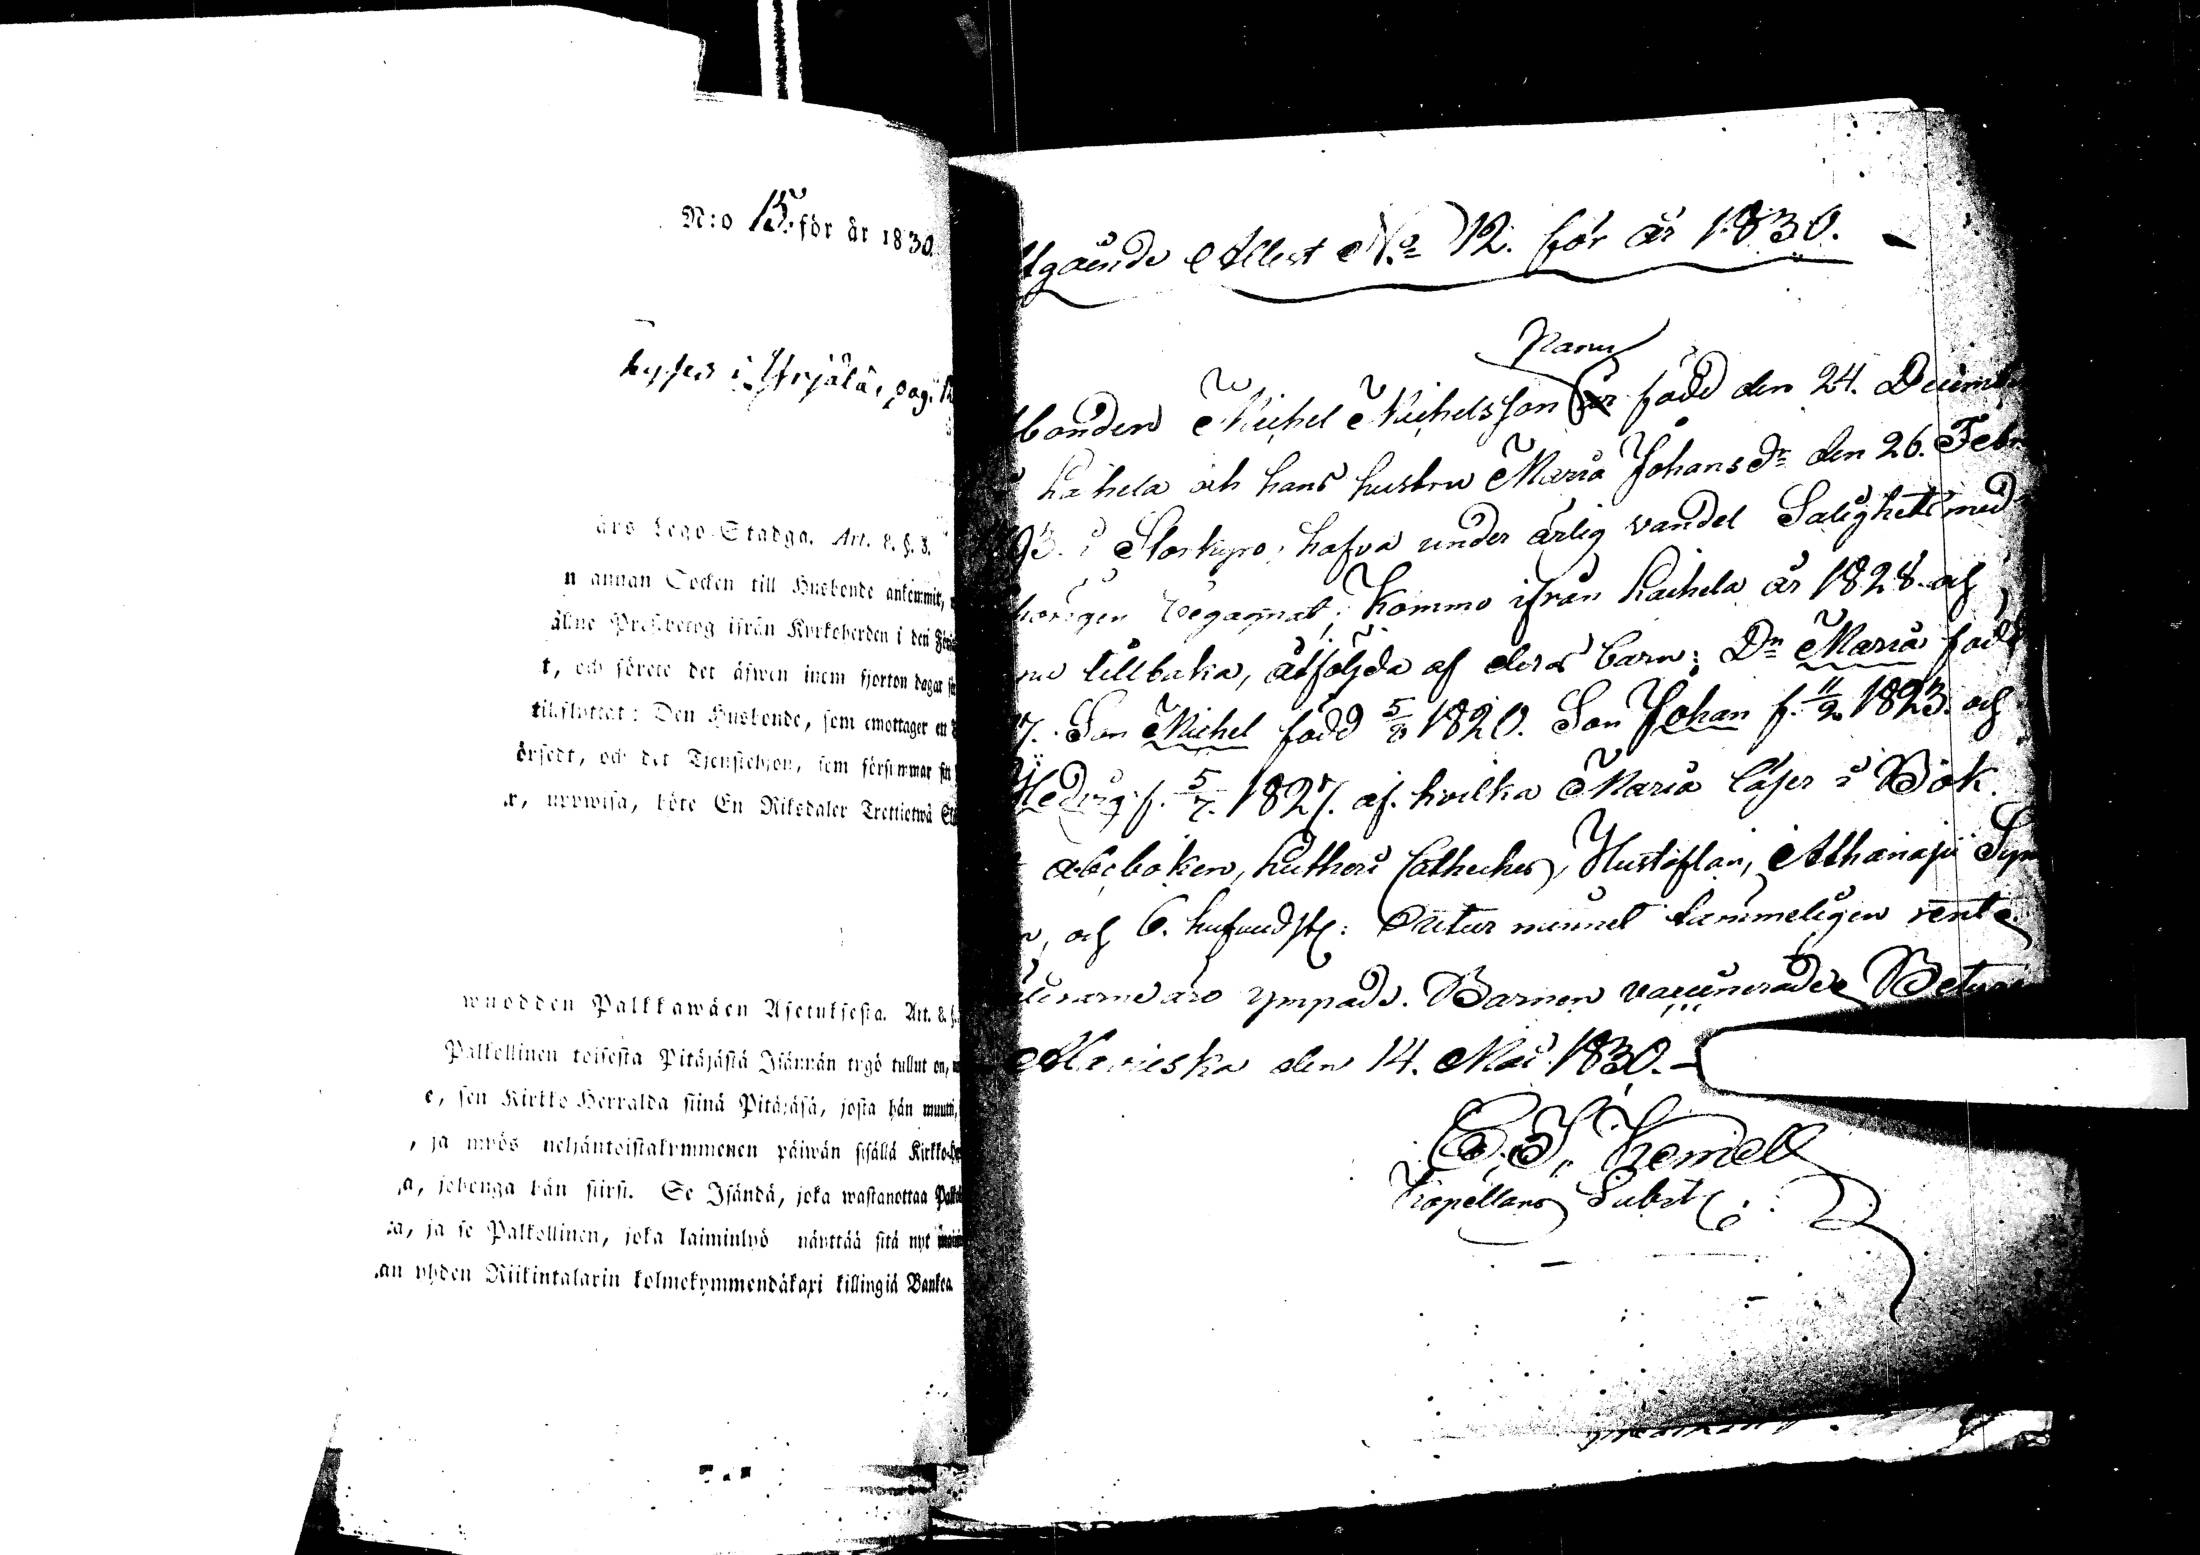 N:o 15. för år 1830.
hyses i Urjälä, pag.
års Lego-Stadga. Art. 8. §. 3.
n annan Socken till Husbonde ankommit,
ifrån Kyrkoherden i den
t, och förete det äfwen inom fjorton dagar
tilflyttat: Den Husbonde, som emottager en
örsedt, och det Tjenstehjon, som försummar
r, uppwisa, böte En Riksdaler Trettiotwå
wuodden Palkkawäen Asetuksesta. Art. 8.
Palkollinen toisesta Pitäjästä Isännän tygö tullut on,
e, sen Kirkko Herralda siinä Pitäjäsä, josta hän muutti,
, ja myös neljäntoistakymmenen päiwän sisällä
a, johonga hän siirsi. Se Isändä, joka wastanottaa
a, ja se Palkollinen, joka laiminlyö näyttää sitä nyt
an yhden Riikintalarin kolmekymmendäkaxi killingiä Bankoa
tgående Attest No 12. för år 1830.
Nanu
bonden Michel Michelsson född den 24. Decemb
Laihela och hans hustru Maria Johansdr den 26. Febr
93. i Storkyro, hafva under ärlig vandel Salighets med
begagnat; Kommo ifrån Laihela år 1828. och
nu tillbaka, åtföljda af deras barn: Dr Maria född
7. Son Michel född 5/8 1820. Son Johan f. 11/2 1823. och
Hedvig f. 5/7. 1827. af hvilka Maria läser i Bok.
abcboken, Lutheri Catheches, Hustaflan, Athanasii Sym
n, och 6. hufvudst: Utur minnet tammeligen
äro ympade. Barnen vaccinerade
Alavieska den 14. Maii 1830.
Kapellans Subst: